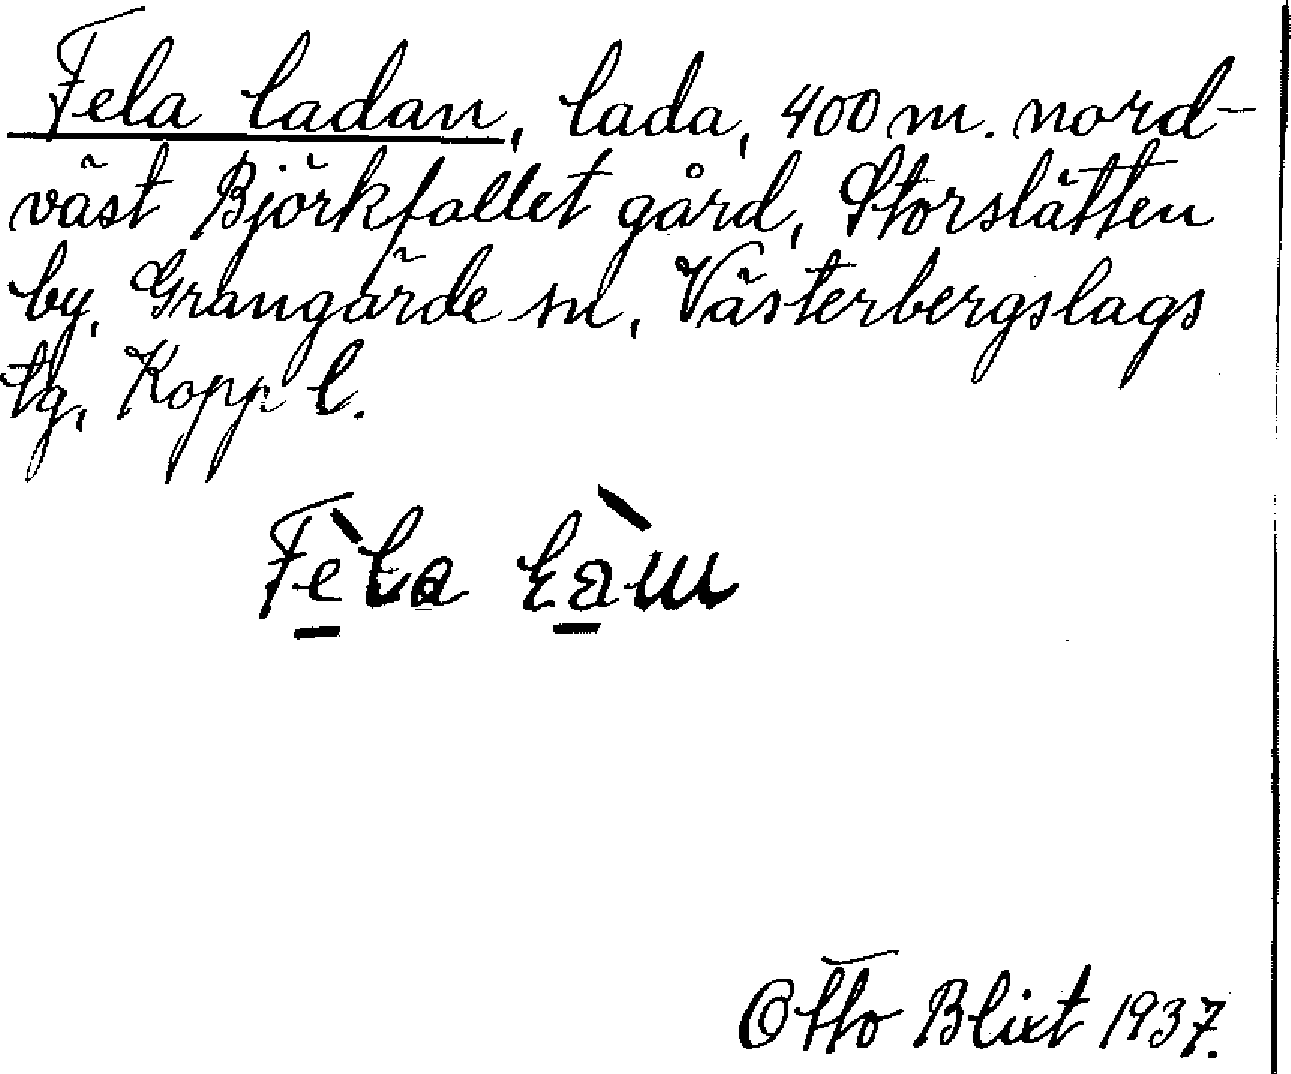 Fela ladan, lada, 400 m. nord-
väst Björkfallet gård, Storslätten
by, Grangärde sn, Västerbergslags
tg, Kopp. l.
Fèla
Otto Blixt 1937.